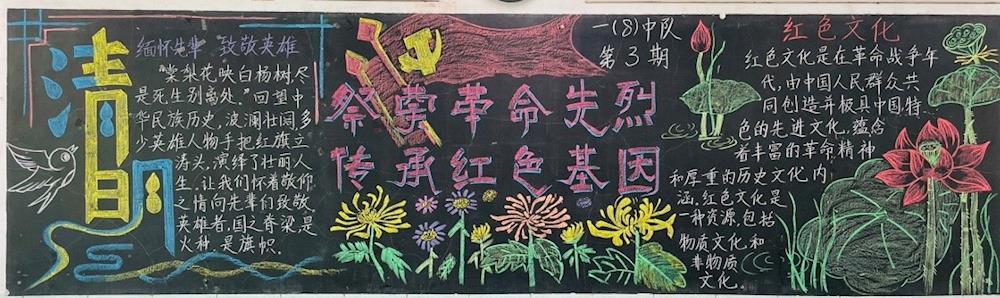 清明
缅怀先辈 致敬英雄
"棠梨花映白杨树,尽
是死生别离处。"回望中
华民族历史,波澜壮阔,多
少英雄人物手把红旗立
涛头,演绎了壮丽人
生。让我们怀着敬仰
之情向先辈们致敬
英雄者,国之脊梁是
火种,是旗帜。
一(8)中队
第3期
祭革命先烈
传承红色基因
红色文化
红色文化是在革命战争年
代,由中国人民群众共
同创造并极具中国特
色的先进文化,蕴含
着丰富的革命精神
和厚重的历史文化内
涵,红色文化是
一种资源,包括
物质文化和
非物质
文化。